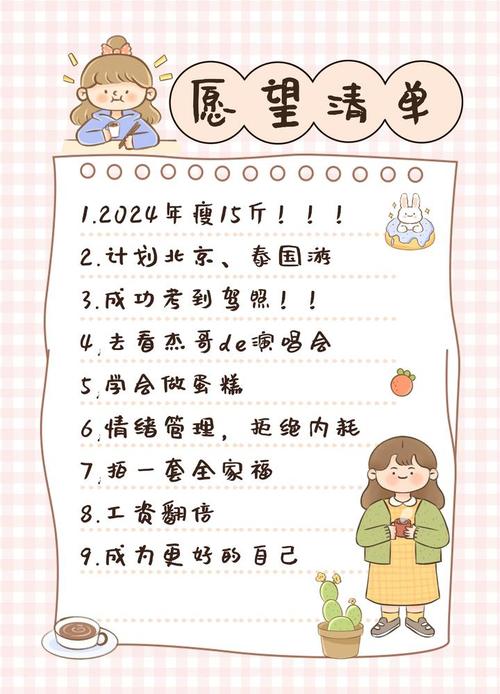 愿望清单
1.2024年瘦15斤!!!
2.计划北京、泰国游
3.成功考到驾照!!
4.去看杰哥de演唱会
5.学会做蛋糕
6.情绪管理,拒绝内耗
7.拍一套全家福
8.工资翻倍
9.成为更好的自己